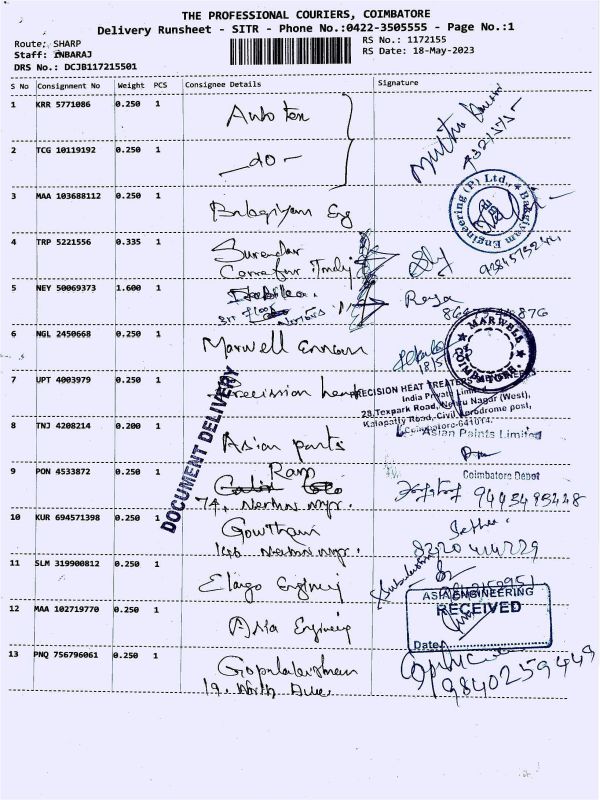 THE PROFESSIONAL COURIERS, COIMBATORE
Delivery Runsheet - SITR - Phone No.:0422-3505555 - Page No.:1
Route: SHARP
RS No.: 1172155
Staff: INBARAJ
RS Date: 18-May-2023
DRS No.: DCJB117215501
S No Consignment No Weight PCS Consignee Details Signature
1 KRR 5771086 0.250 1 Auto tex
2 TCG 10119192 0.250 1 -do-
3 MAA 103688112 0.250 1 Balagiyam Eng
Bakgiyam Engineering (P) Ltd.,
4 TRP 5221556 0.335 1 Surendar
9384575244
5 NEY 50069373 1.600 1
Raja
6 NGL 2450668 0.250 1 Marwell
MARWELA
COIMBATORE
7 UPT 4003979 0.250 1 Precission heat
PRECISION HEAT TREATERS
India Private Limited
28, Texpark Road, Nehru Nagar (West),
Kalapatty Road, Civil Aerodrome post,
Coimbatore-641014.
8 TNJ 4208214 0.200 1 Asian paints
Asian Paints Limited
Coimbatore Depot
DOCUMENT DELIVERY
9 PON 4533872 0.250 1 Ram
74, Nehru ngr.
9445495448
10 KUR 694571398 0.250 1 Gowtham
146, Nehru ngr.
8220414229
11 SLM 319900812 0.250 1 Elango Engineg
12 MAA 102719770 0.250 1 Asia Engineeg
ASIA ENGINEERING
RECEIVED
Date
13 PNQ 756796061 0.250 1 Gopalakrishnan
19, North Ave.
9840259449